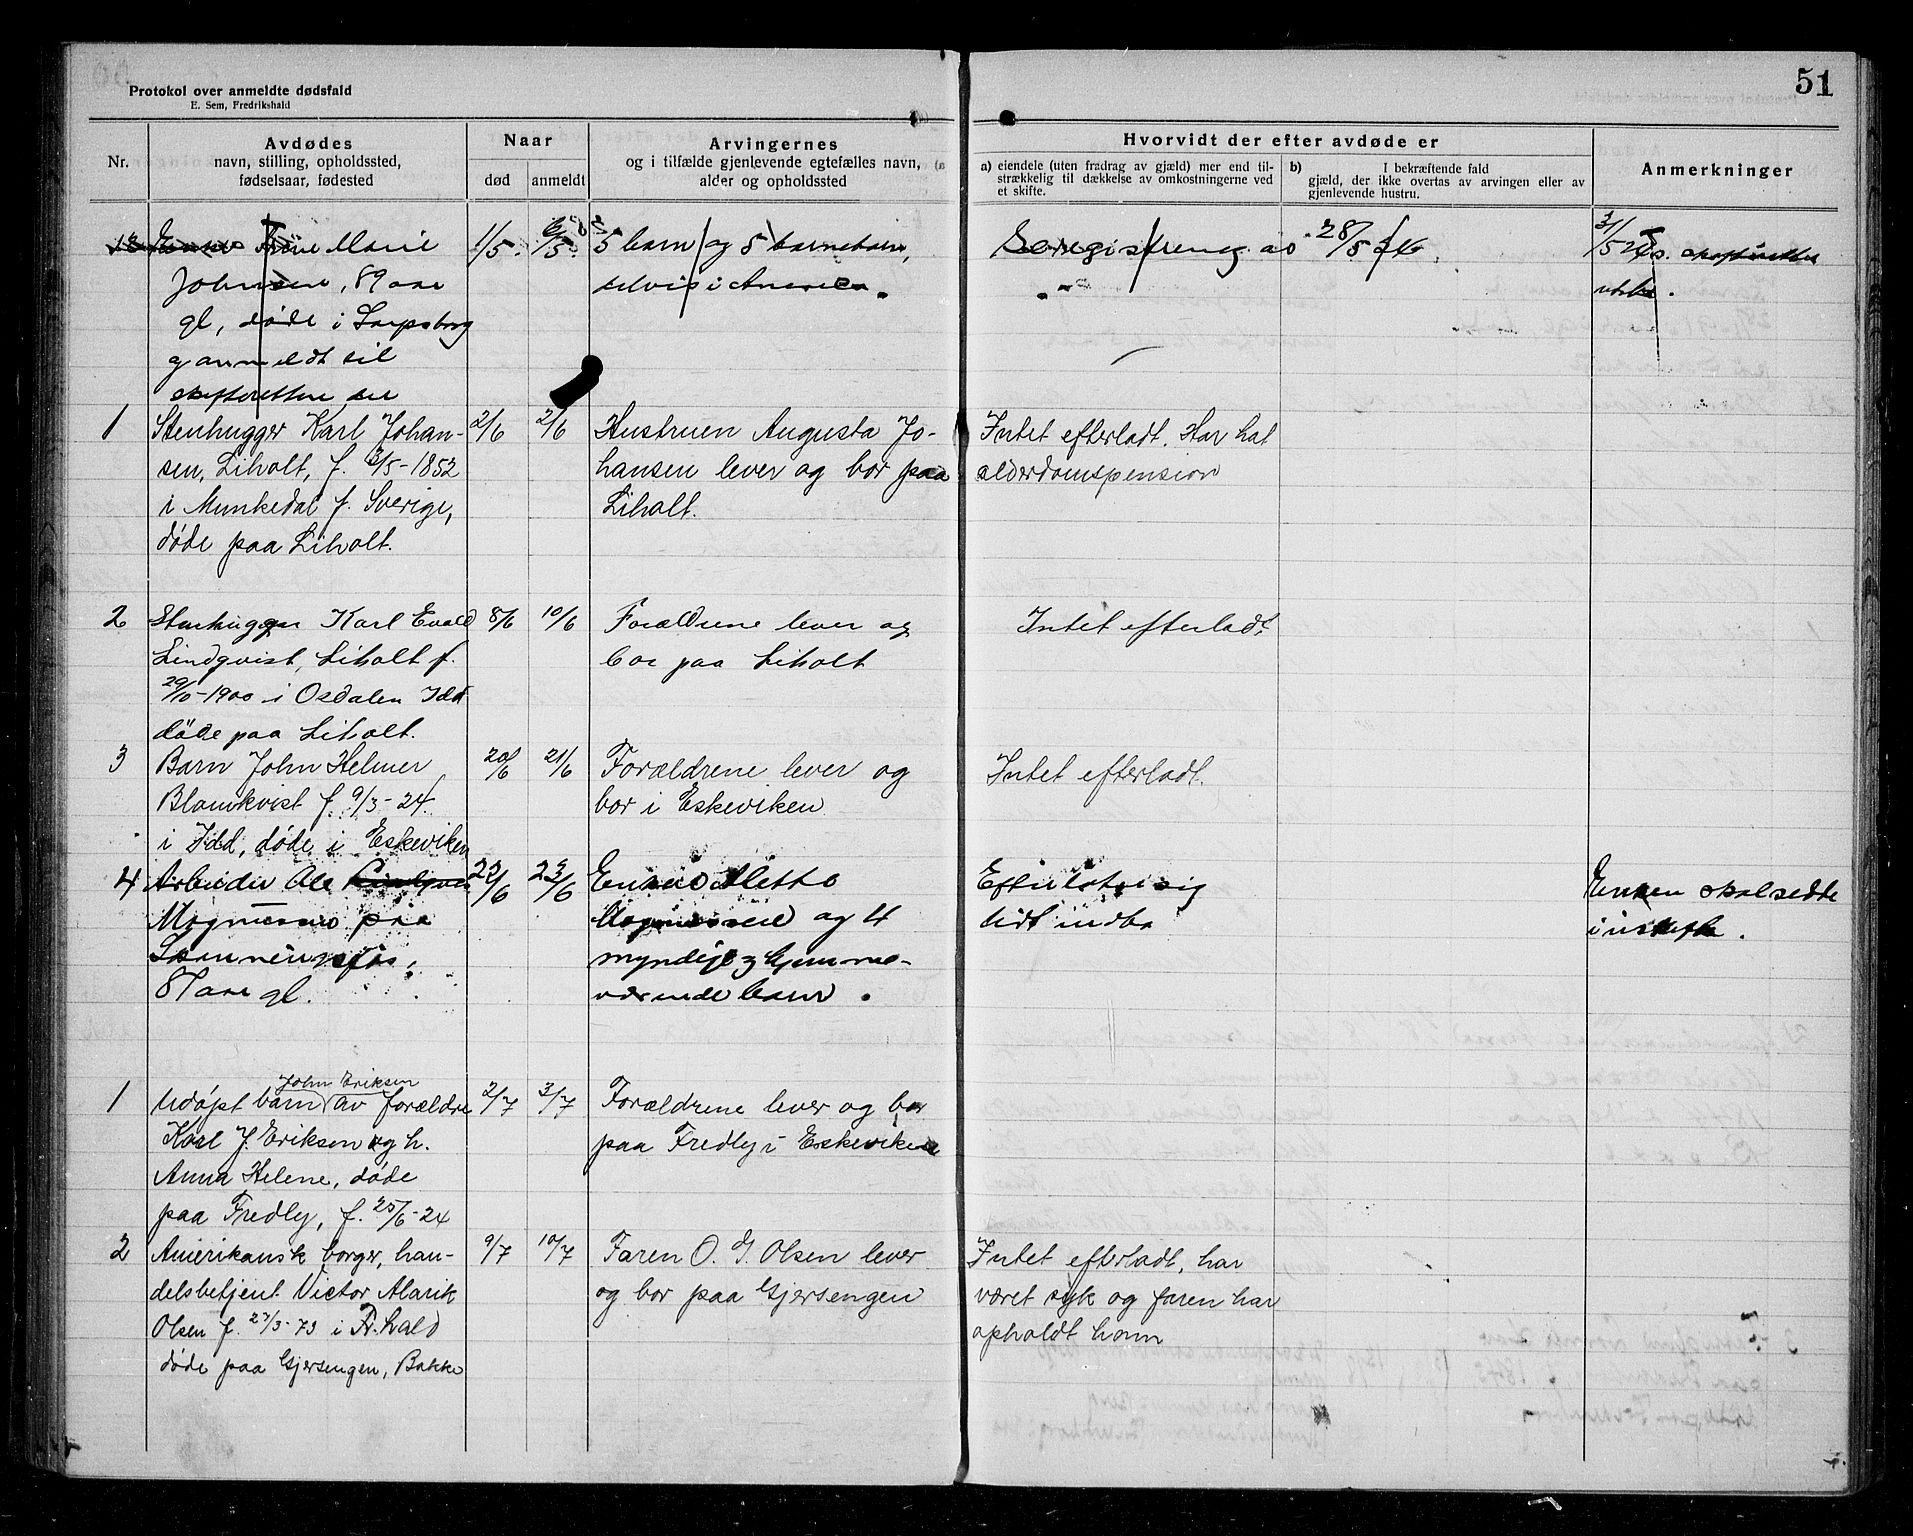 51
Protokol over anmeldte dødsfald
E. Sem, Fredrikshald
Nr.
Avdødes
navn, stilling, opholdssted,
fødselsaar, fødested
Naar
død
anmeldt
Arvingernes
og i tilfælde gjenlevende egtefælles navn,
alder og opholdssted
Hvorvidt der efter avdøde er
a) eiendele (uten fradrag av gjæld) mer end til-
strækkelig til dækkelse av omkostningerne ved
et skifte.
b) I bekræftende fald
gjæld, der ikke overtas av arvingen eller av
gjenlevende hustru.
Anmerkninger
13 Marie 1/5. 6/5. 5 barn og 5 barnebarn, 28/5 24. 31/5 24
Johnsene, 89 aar delvis i Amerika.
gl, døde i Sarpsborg
og anmeldt til
skifteretten der
1 Stenhugger Karl Johan- 2/6 2/6 Hustruen Augusta Jo- Intet efterladt. Har hat
sen, Liholt, f. 3/5-1852 hansen lever og bor paa alderdomspension
i Munkedal f. Sverige, Liholt.
døde paa Liholt.
2 Stenhugger Karl Evald 8/6 10/6 Forældrene lever og Intet efterladt
Lindqvist, Liholt f. bor paa Liholt
29/10-1900 i Osdalen Idd
døde paa Liholt.
3 Barn John Helmer 20/6 21/6 Forældrene lever og Intet efterladt.
Blomkvist f. 9/3-24 bor i Eskeviken
i Idd, døde i Eskeviken
4 Arbeider Ole 22/6 23/6 Enken Efterlot sig Enken skal sidde
Magnussen paa Magnussen og 4 lidt indbo i uskifte.
myndige hjemme-
87 aar gl. værende barn.
1 Udøpt barn John Eriksen av forældre 2/7 3/7 Forældrene lever og bor
Karl J. Eriksen og h. paa Fredly i Eskeviken
Anna Helene, døde
paa Fredly, f. 25/6-24
2 Amerikansk borger, han- 9/7 10/7 Faren O. J. Olsen lever Intet efterladt, har
delsbetjent Victor Alarik og bor paa Gjersengen været syk og faren har
Olsen f. 27/3-73 i Fr.hald opholdt ham
døde paa Gjersengen, Bakke